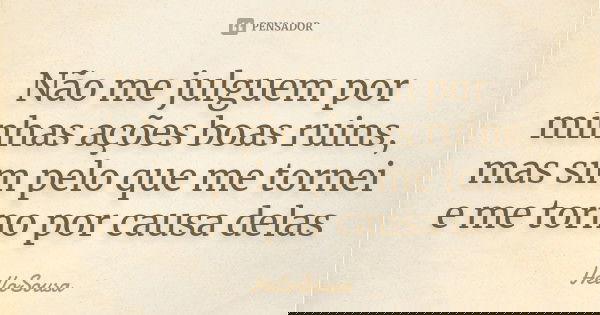 PENSADOR
Não me julguem por
minhas ações boas ruins,
mas sim pelo que me tornei
e me torno por causa delas
HelloSousa